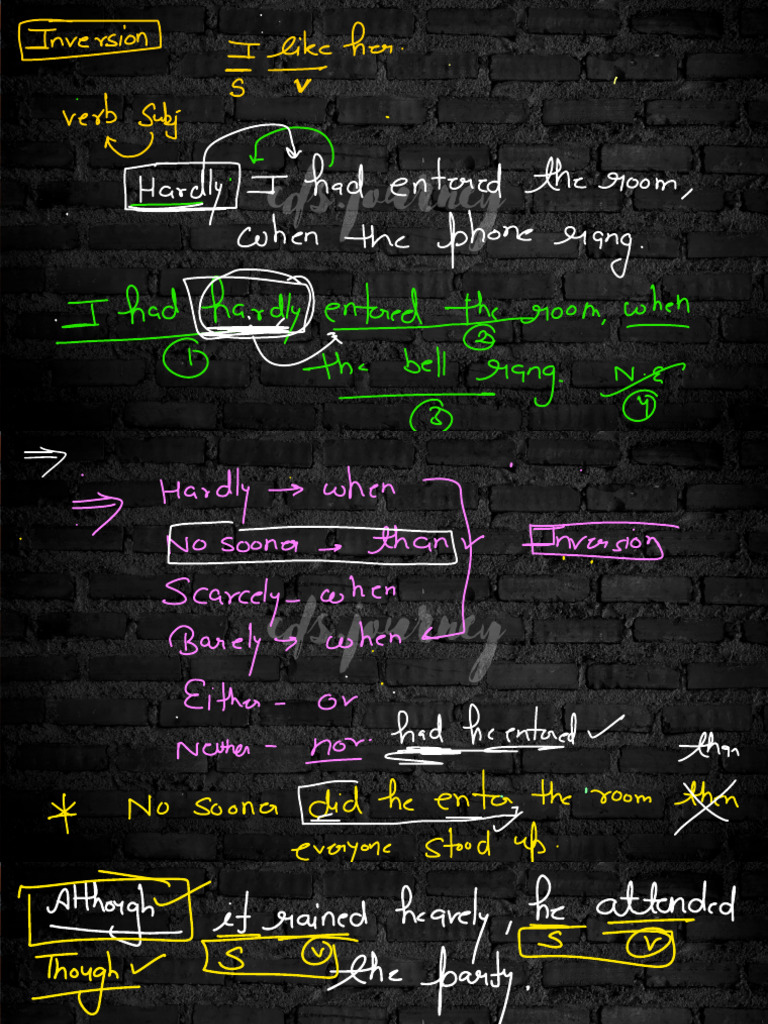 Inversion
I like her.
S V
verb Subj
Hardly I had entered the room,
when the phone rang.
I had hardly entered the room, when
① ②
the bell rang. N.E
③ ④
⇒
⇒ Hardly → when
No sooner → than ✓ Inversion
Scarcely - when
Barely → when
Either - or
Neither - nor. had he entered ✓
than
* No sooner did he enter, the room then
everyone stood up.
Although ✓ it rained heavely, he attended
S V S V
Though ✓ the party.
cds.journey
cds.journey